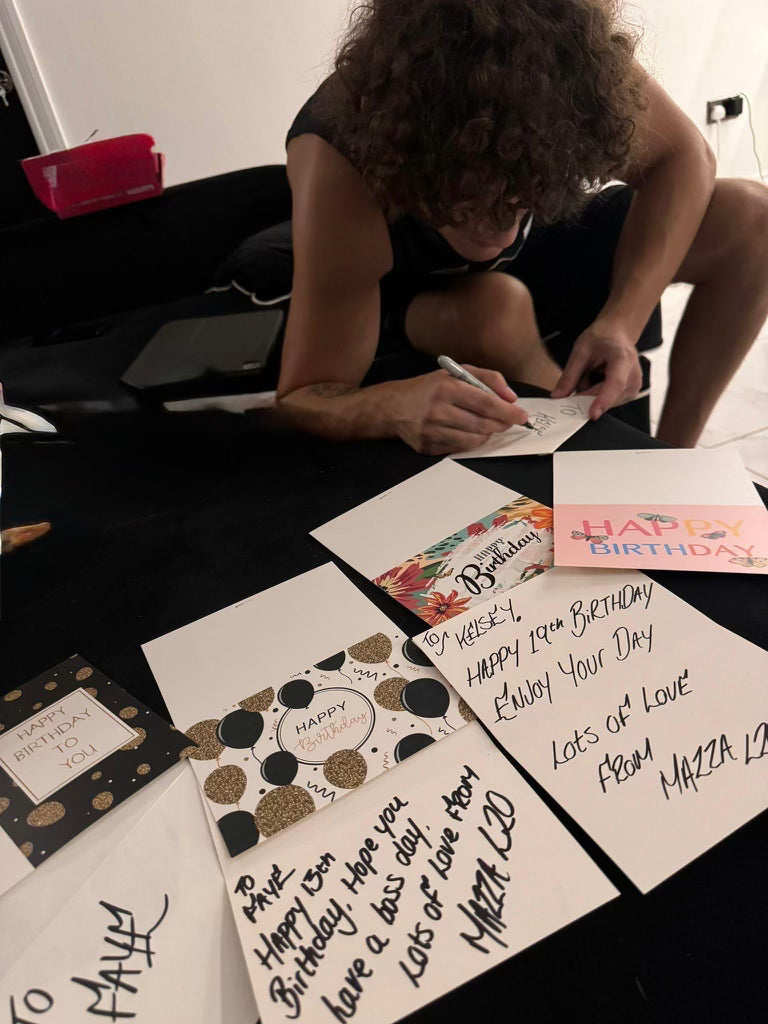 TO
HELEN
HAPPY
BIRTHDAY
HAPPY
Birthday
TO KELSEY.
HAPPY 19th BIRTHDAY
ENJOY YOUR DAY
LOTS OF LOVE
FROM
MAZZA L20
HAPPY
Birthday
HAPPY
BIRTHDAY
TO
YOU
TO
FAYE
HAPPY 13th
Birthday. Hope you
have a boss day.
LOTS OF LOVE FROM
MAZZA L20
TO
FAYE